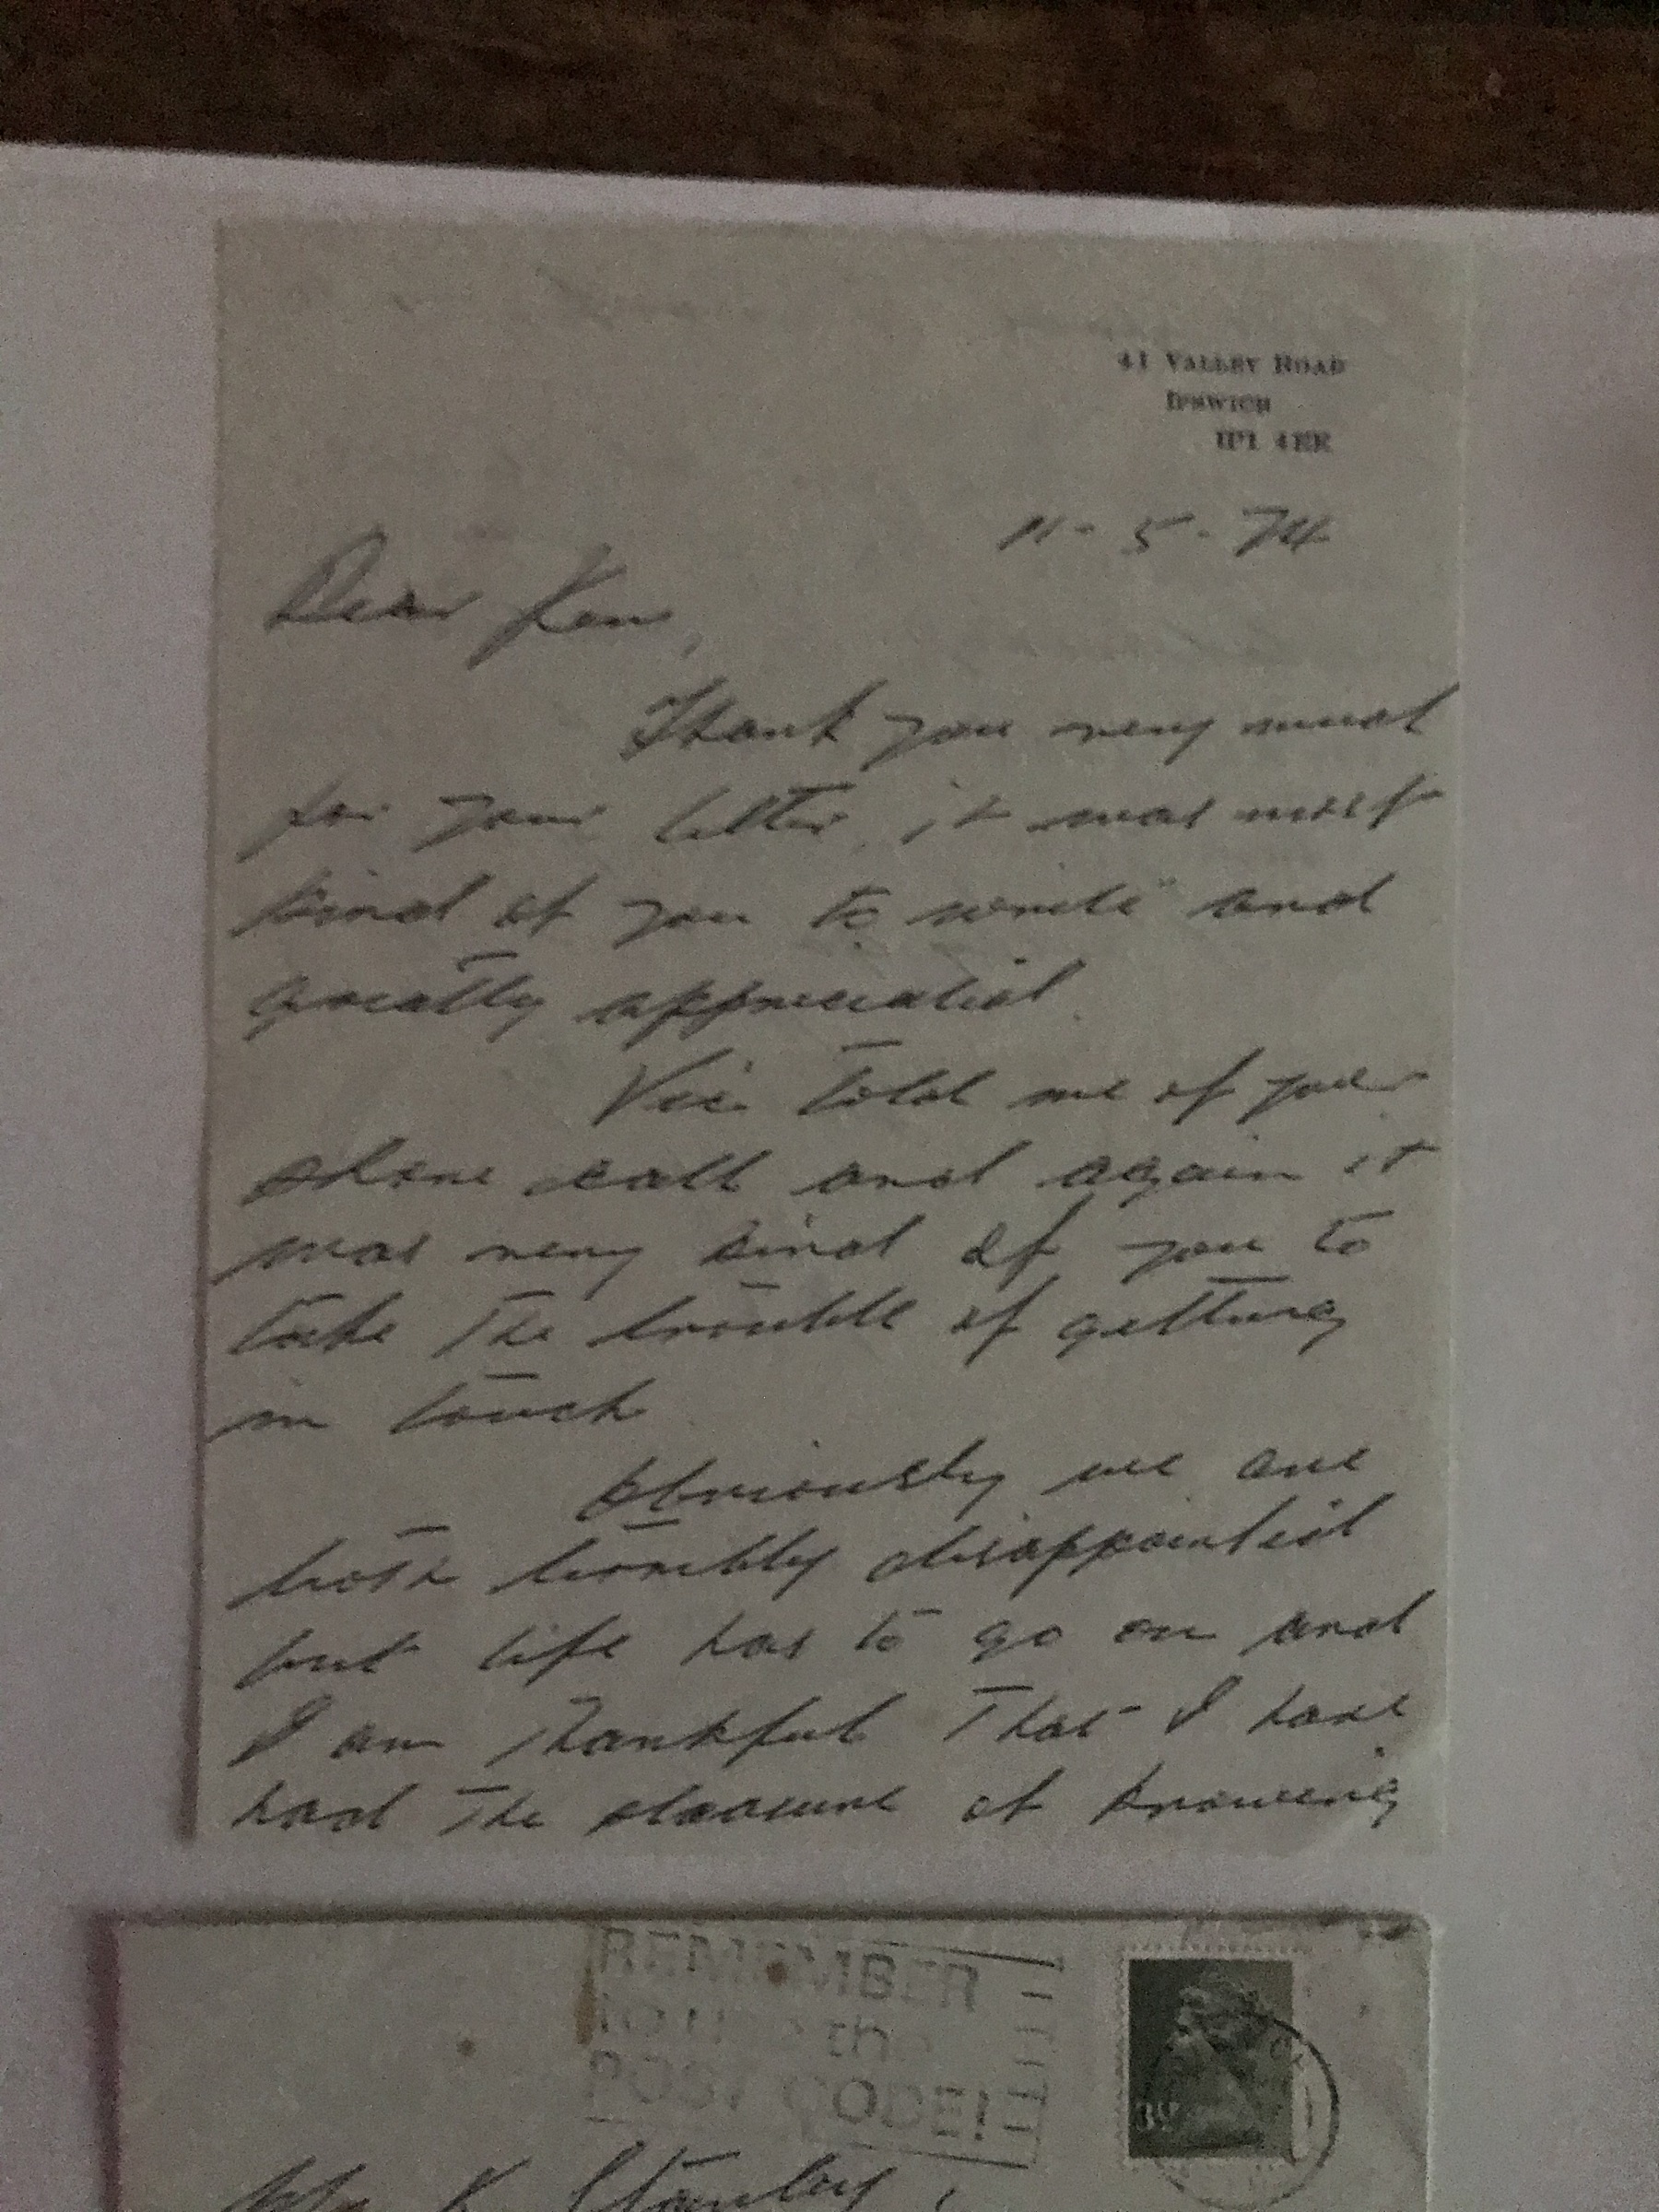 41 VALLEY ROAD
IPSWICH
IP1 4EE
11-5-74
Dear Ken,
Thank you very much
for your letter, it was most
kind of you to write and
greatly appreciated.
Vic told me of your
phone call and again it
was very kind of you to
take the trouble of getting
in touch.
Obviously we are
both terribly disappointed
but life has to go on and
I am thankful that I have
had the pleasure of knowing
REMEMBER
the
POST CODE!
Mr K. Stanley,